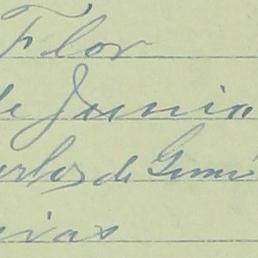 Flor
de Junio
arlos de Gumi
ias